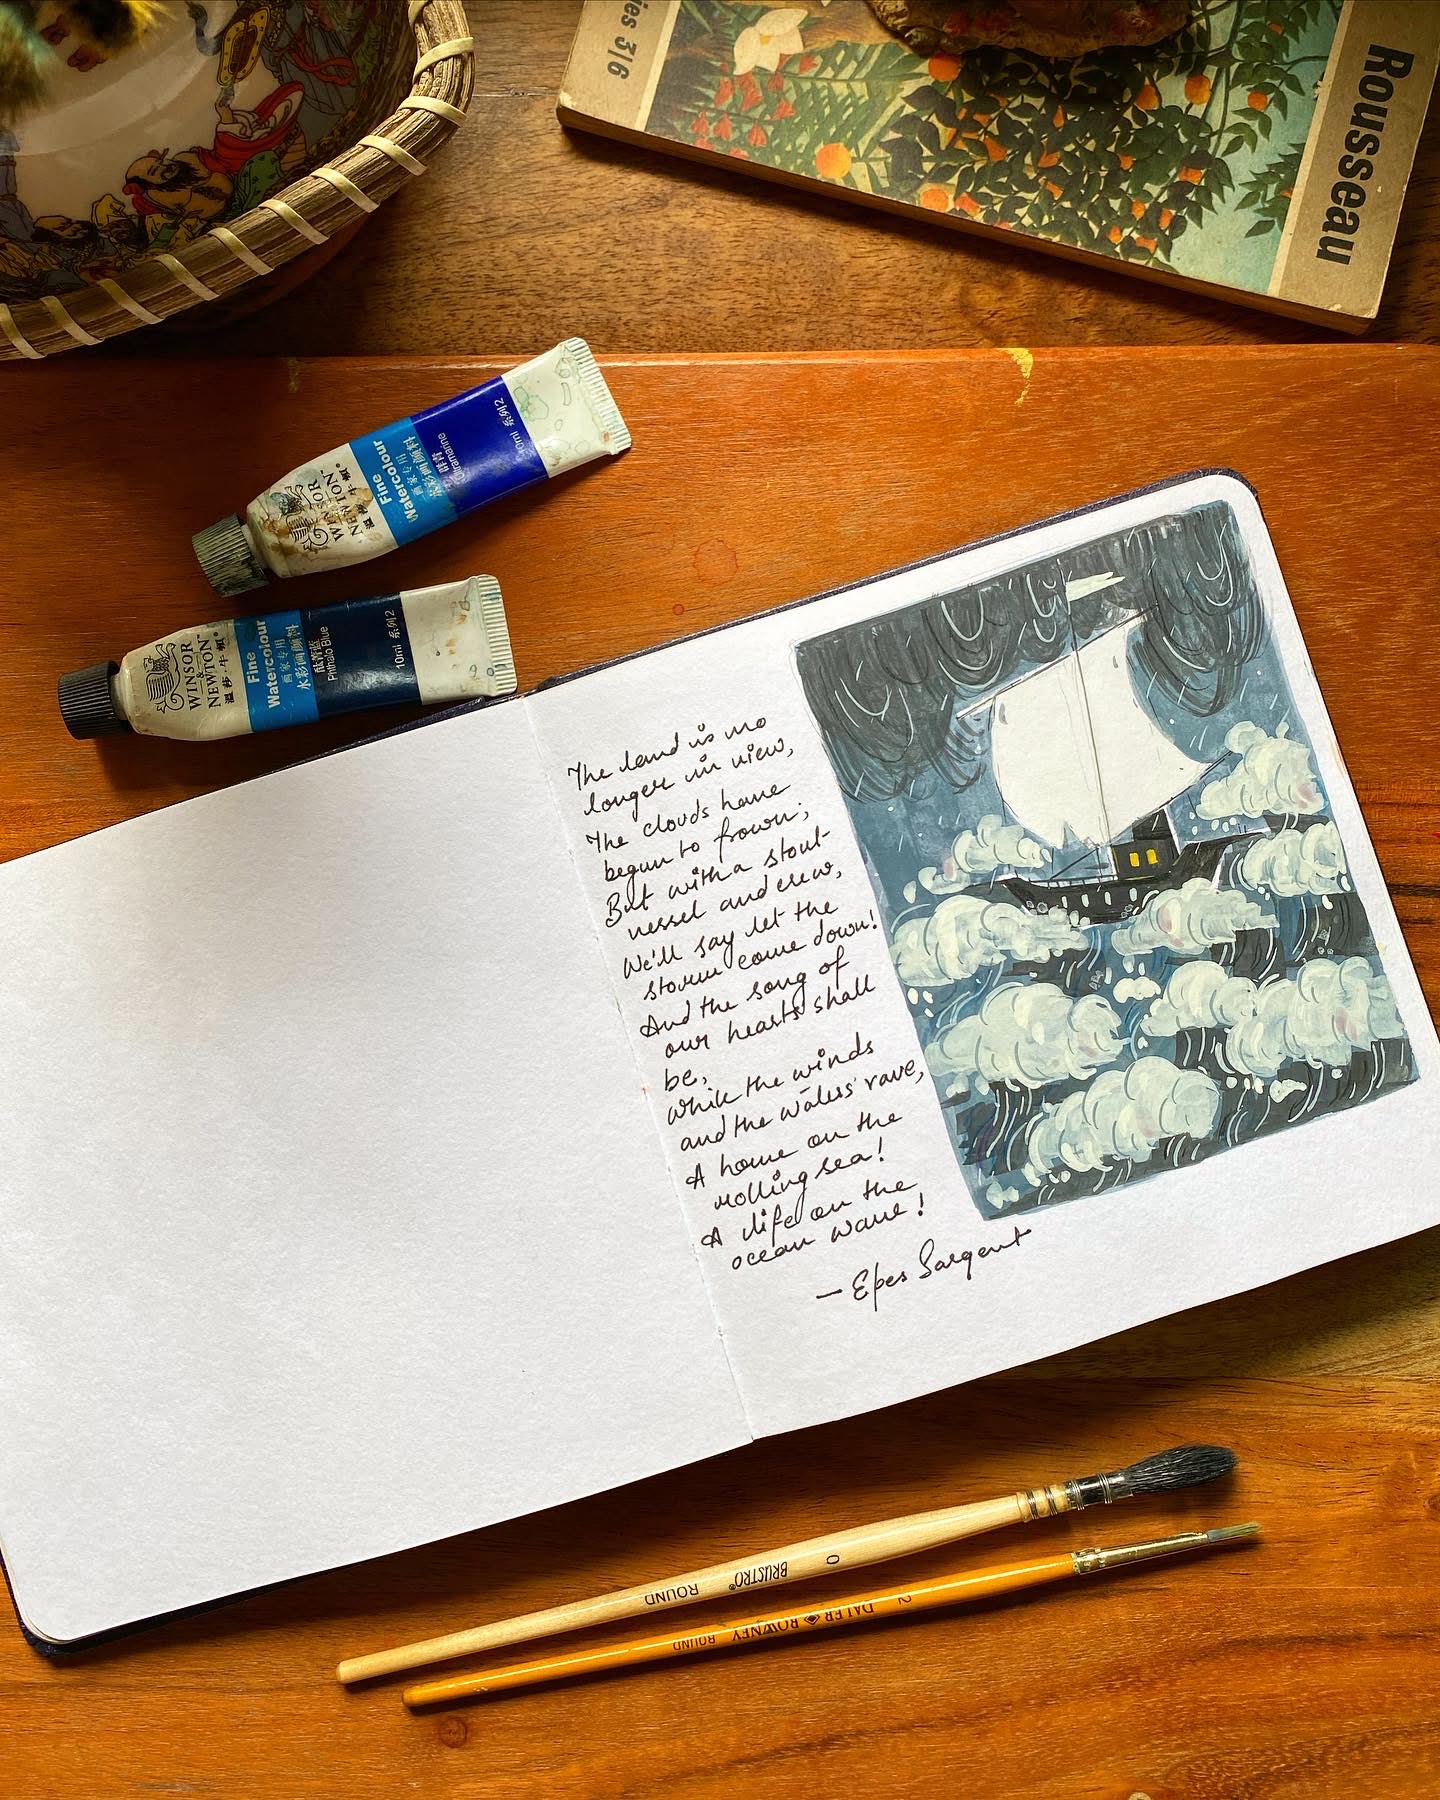 ies 3/6
Rousseau
WINSOR
&
NEWTON™
温莎·牛顿®
Fine
Watercolour
画家专用
水彩画颜料
Ultramarine
10ml 系列2
WINSOR
&
NEWTON™
温莎·牛顿®
Fine
Watercolour
画家专用
水彩画颜料
酞菁蓝
Pthalo Blue
10ml 系列2
The land is no
longer in view,
The clouds have
begun to frown;
But with a stout
vessel and crew,
We'll say let the
storm come down!
And the song of
our hearts shall
be,
While the winds
and the waters rave,
A home on the
rolling sea!
A life on the
ocean wave!
— Epes Sargent
ROUND BRUSTRO® 0
ROUND DALER ROWNEY 2